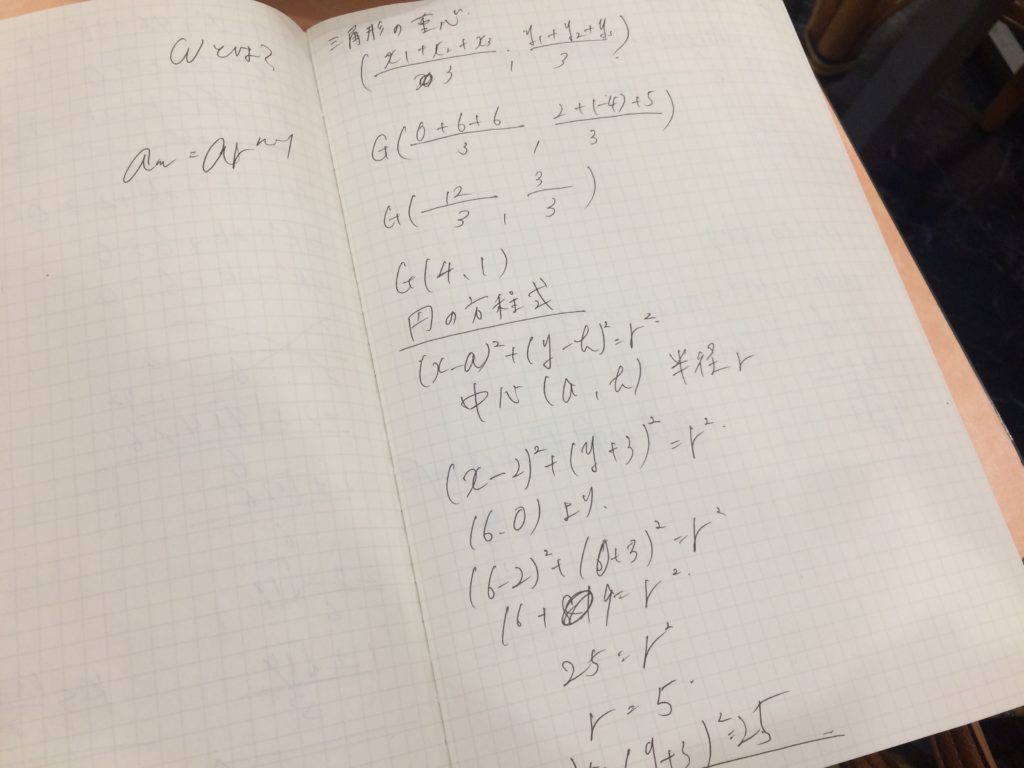 ωとは?
an = ar^n-1
三角形の重心
( (x1+x2+x3)/3 , (y1+y2+y3)/3 )
G( (0+6+6)/3 , (2+(-4)+5)/3 )
G( 12/3 , 3/3 )
G(4、1)
円の方程式
(x-a)²+(y-b)²=r²
中心(a,b) 半径r
(x-2)²+(y+3)²=r²
(6.0)より
(6-2)²+(0+3)²=r²
16+9=r²
25=r²
r=5
(y+3)²=25